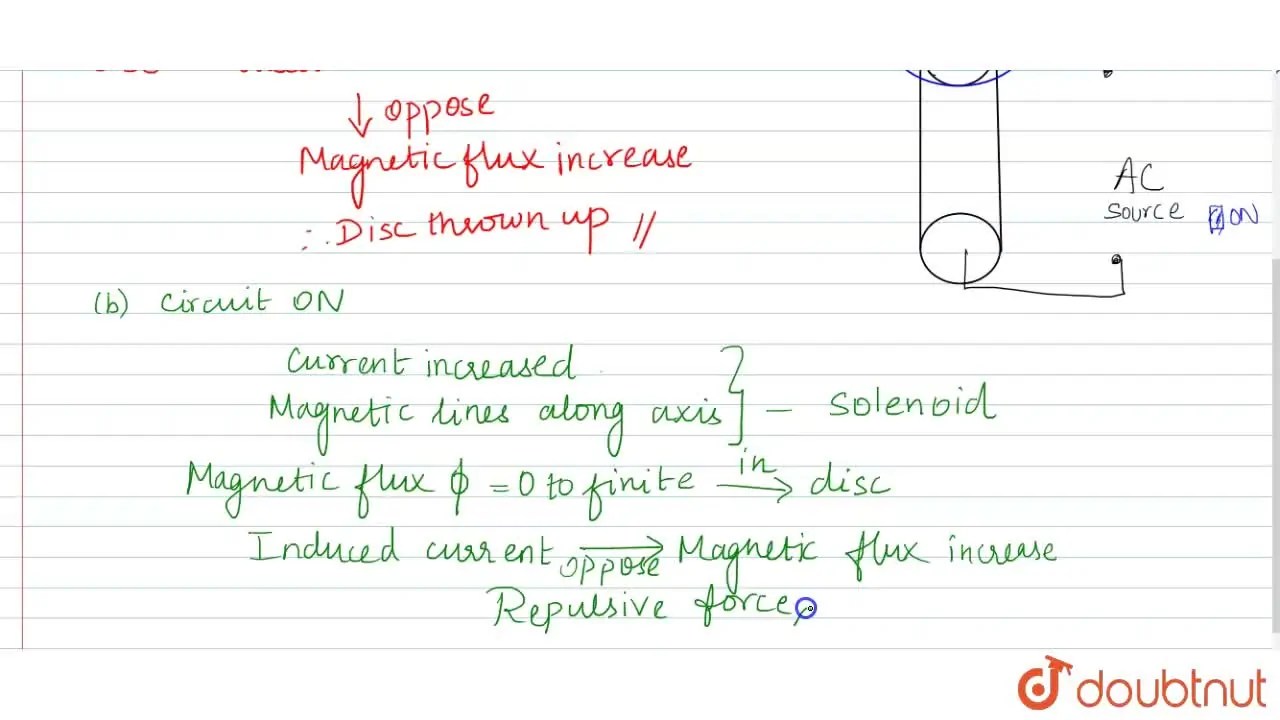 ↓ oppose
Magnetic flux increase
∴ Disc thrown up //
AC
source ON
(b) Circuit ON
Current increased
Magnetic lines along axis } — Solenoid
Magnetic flux ϕ = 0 to finite in → disc
Induced current → oppose Magnetic flux increase
Repulsive force,
doubtnut